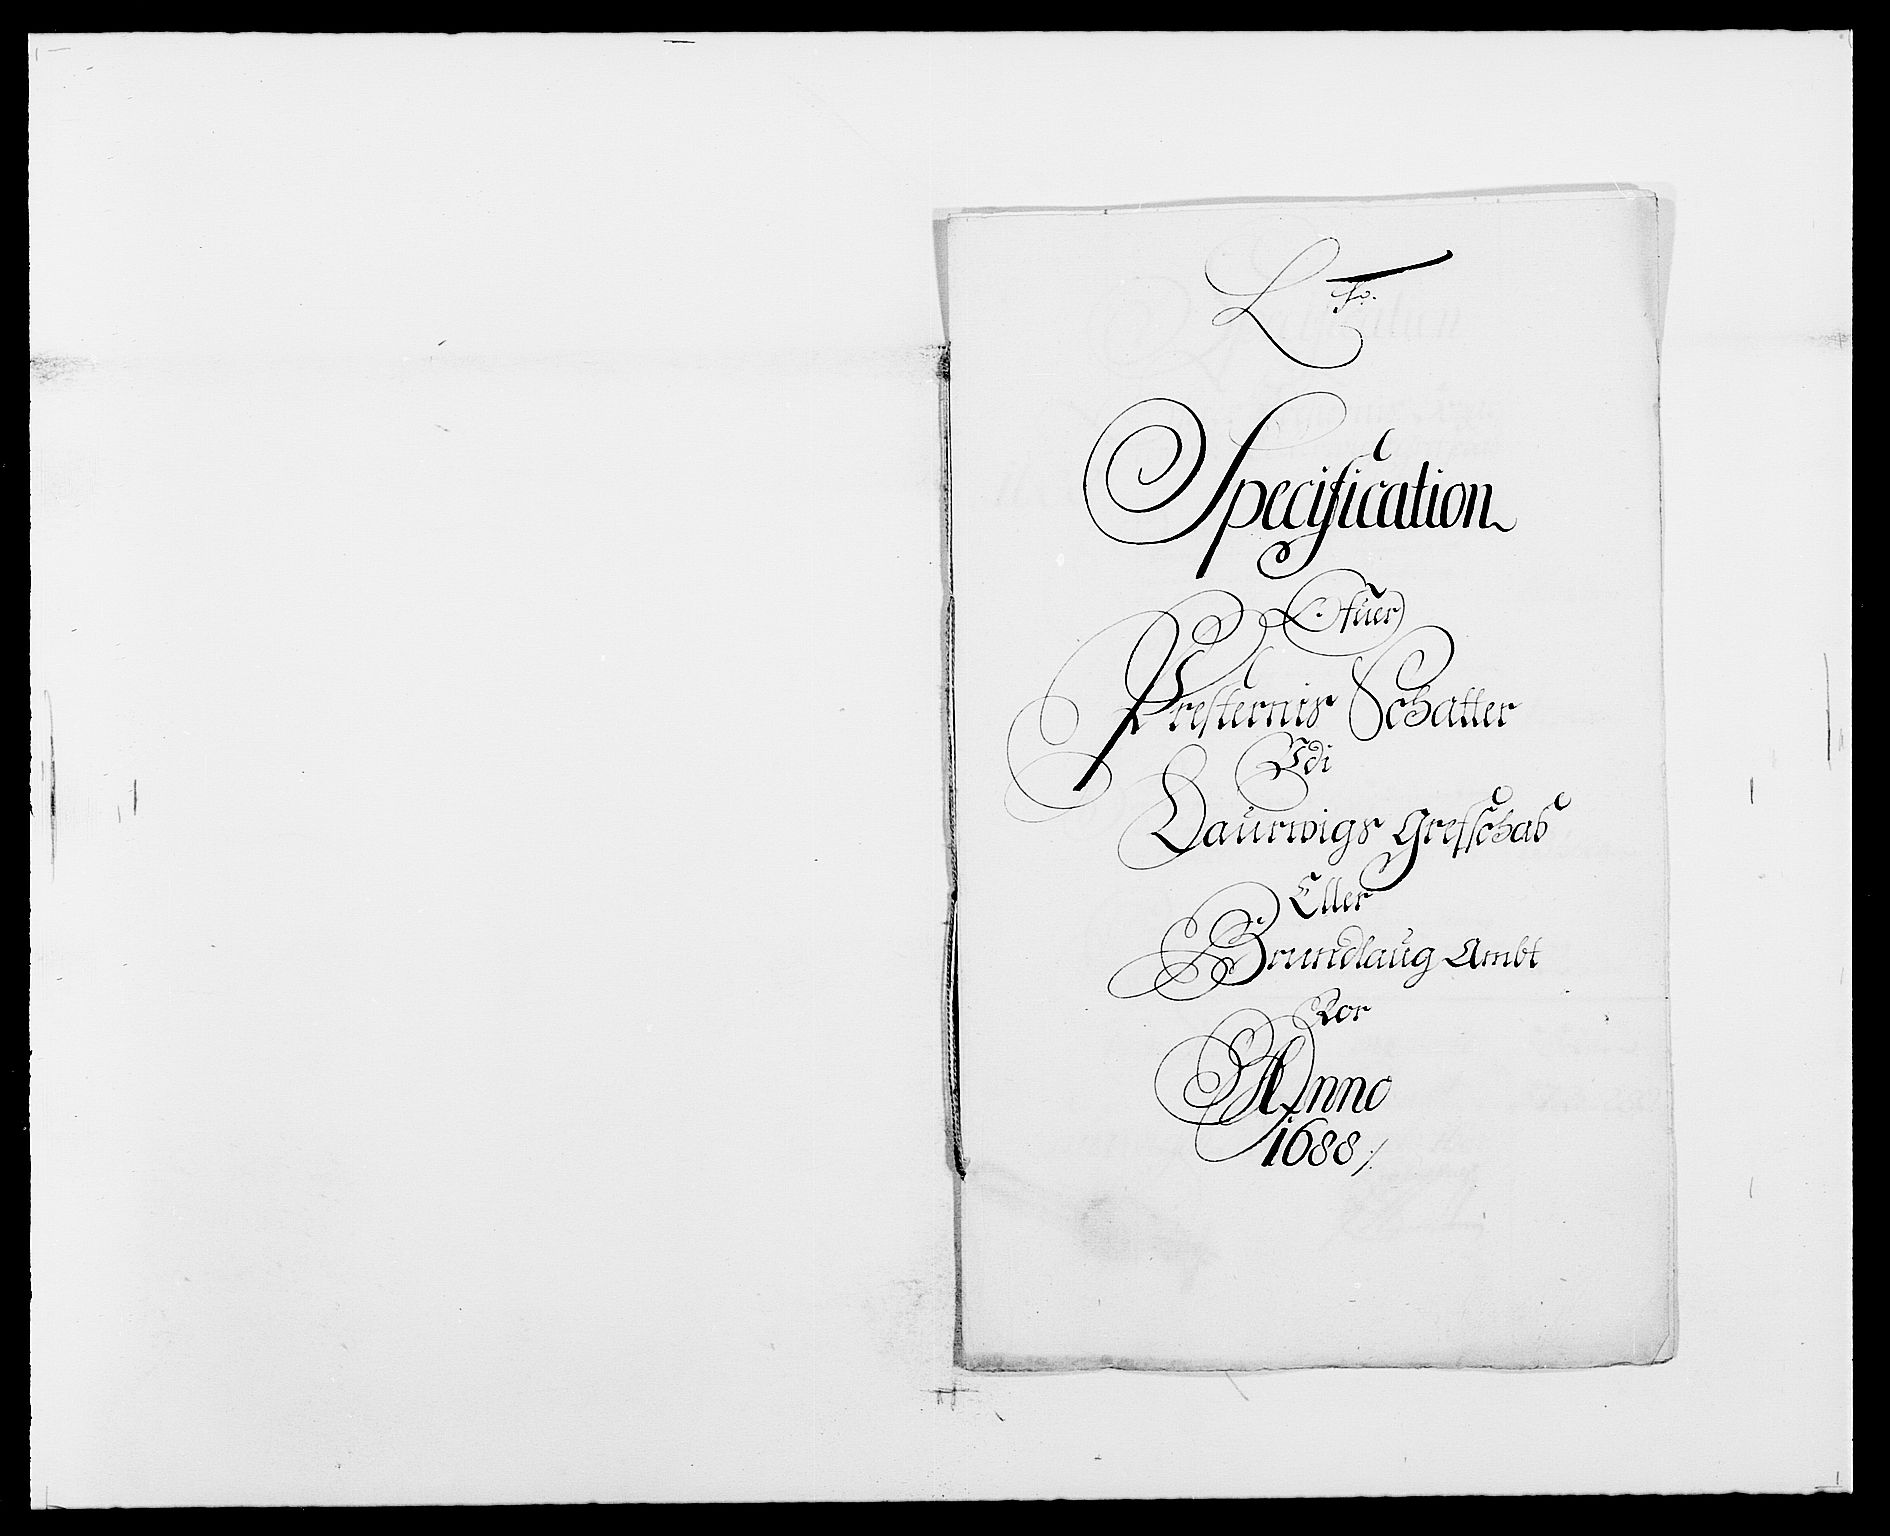 L
Specification
Ofuer
Presternis Schatter
Udi
Laurwigs Grefschab
Eller
Brundlaug Ambt
For
Anno
1688